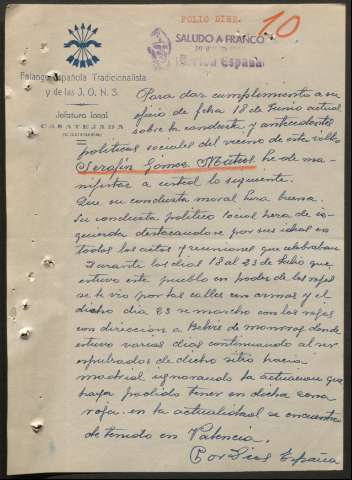 FOLIO DIEZ.
10
SALUDO A FRANCO
¡Arriba España!
Falange Española Tradicionalista
y de las J. O. N. S.
Jefatura local
CASATEJADA
(CACERES)
Para dar cumplimiento a su
oficio de fcha 18 de Junio actual
sobre la conducta y antecedentes
politicos sociales del vecino de este
Serafin Gomez Mateos he de ma-
nifestar a usted lo siguiente.
Que su conducta moral hera buena.
Su conducta politico social hera de es-
querda destacandose por sus ideas en
todos los actos y reuniones que celebraban
Durante los dias 18 al 23 de Julio que
estuvo este pueblo en poder de los rojos
se le vio por las calles con armas y el
dicho dia 23 se marcho con los rojos
con direccion a Belvis de monroy donde
estuvo varios dias continuando al ser
expulsados de dicho sitio hacia
madrid ignorando la actuacion que
haya podido tener en dicha zona
roja. en la actualidad se encuentra
detenido en
Por Dios España